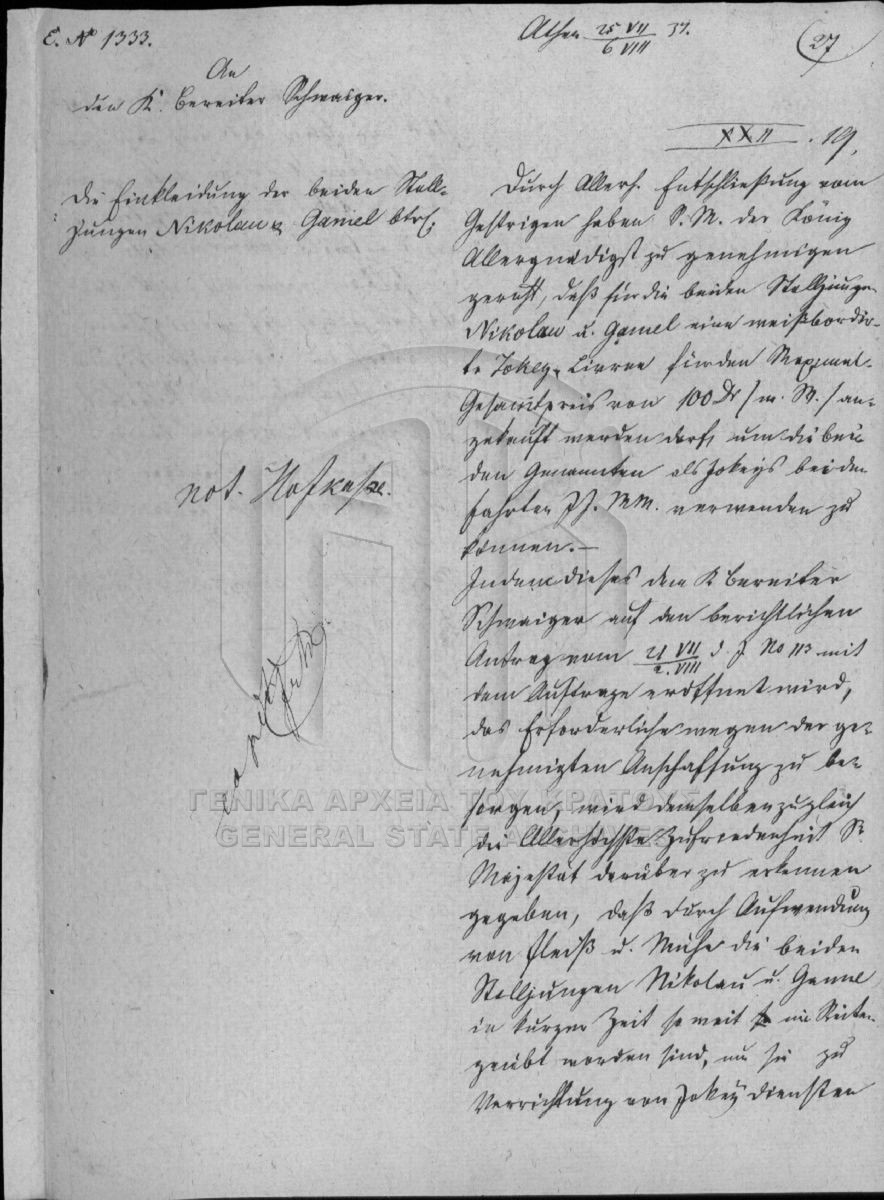 E. No 1333.
Athen 25 VII / 6 VIII 37.
27
An
den K. Bereiter Schwaiger.
XXII . 19,
Die Einkleidung der beiden Stall-
jungen Nikolau & Gamel btr.
Durch Allerh. Entschließung vom
Gestrigen haben S. M. der König
Allergnädigst zu genehmigen
geruht, daß für die beiden Stalljungen
Nikolau u. Gamel eine weißbordir-
te Jokey-Livree für den Maximal-
Gesamtpreis von 100 Dr / m. W. / an-
gekauft werden darf, um die bei-
den Genannten als Jokeys bei den
Fahrten JJ. MM. verwenden zu
können. —
not. Hofkasse.
Indem dieses dem K Bereiter
Schwaiger auf den berichtlichen
Antrag vom 21 VII / 2. VIII d. J. No 113 mit
dem Auftrage eröffnet wird,
das Erforderliche wegen der ge-
nehmigten Anschaffung zu be-
sorgen, wird demselben zugleich
die Allerhöchste Zufriedenheit Sr.
Majestät darüber zu erkennen
gegeben, daß durch Aufwendung
von Fleiß u. Mühe die beiden
Stalljungen Nikolau u. Gamel
in kurzer Zeit so weit im Reiten
geübt worden sind, um sie zu
Verrichtung von Jokeydiensten
ΓΕΝΙΚΑ ΑΡΧΕΙΑ ΤΟΥ ΚΡΑΤΟΥΣ
GENERAL STATE ARCHIVES